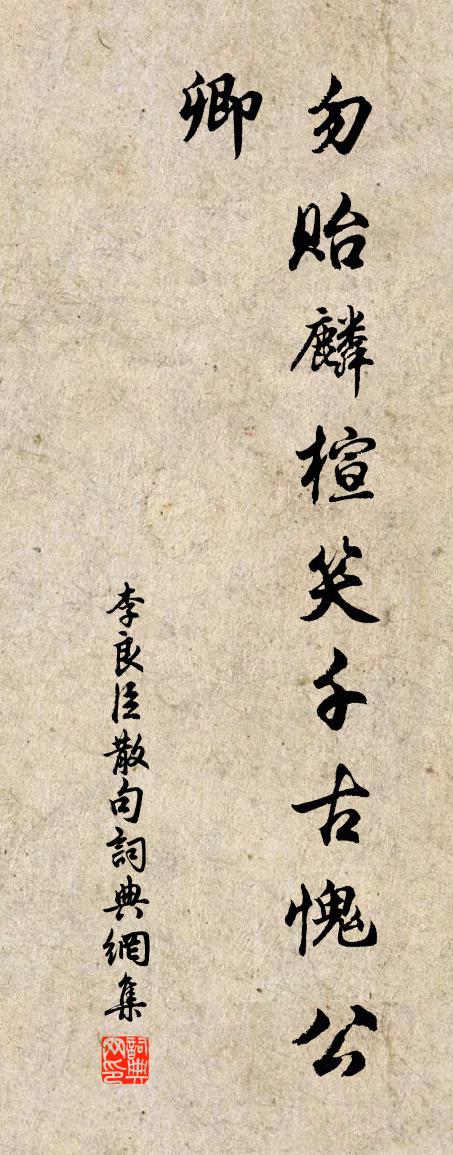 勿貽麟楦笑千古愧公
卿
李良臣散句詞典網集
詞典
网印